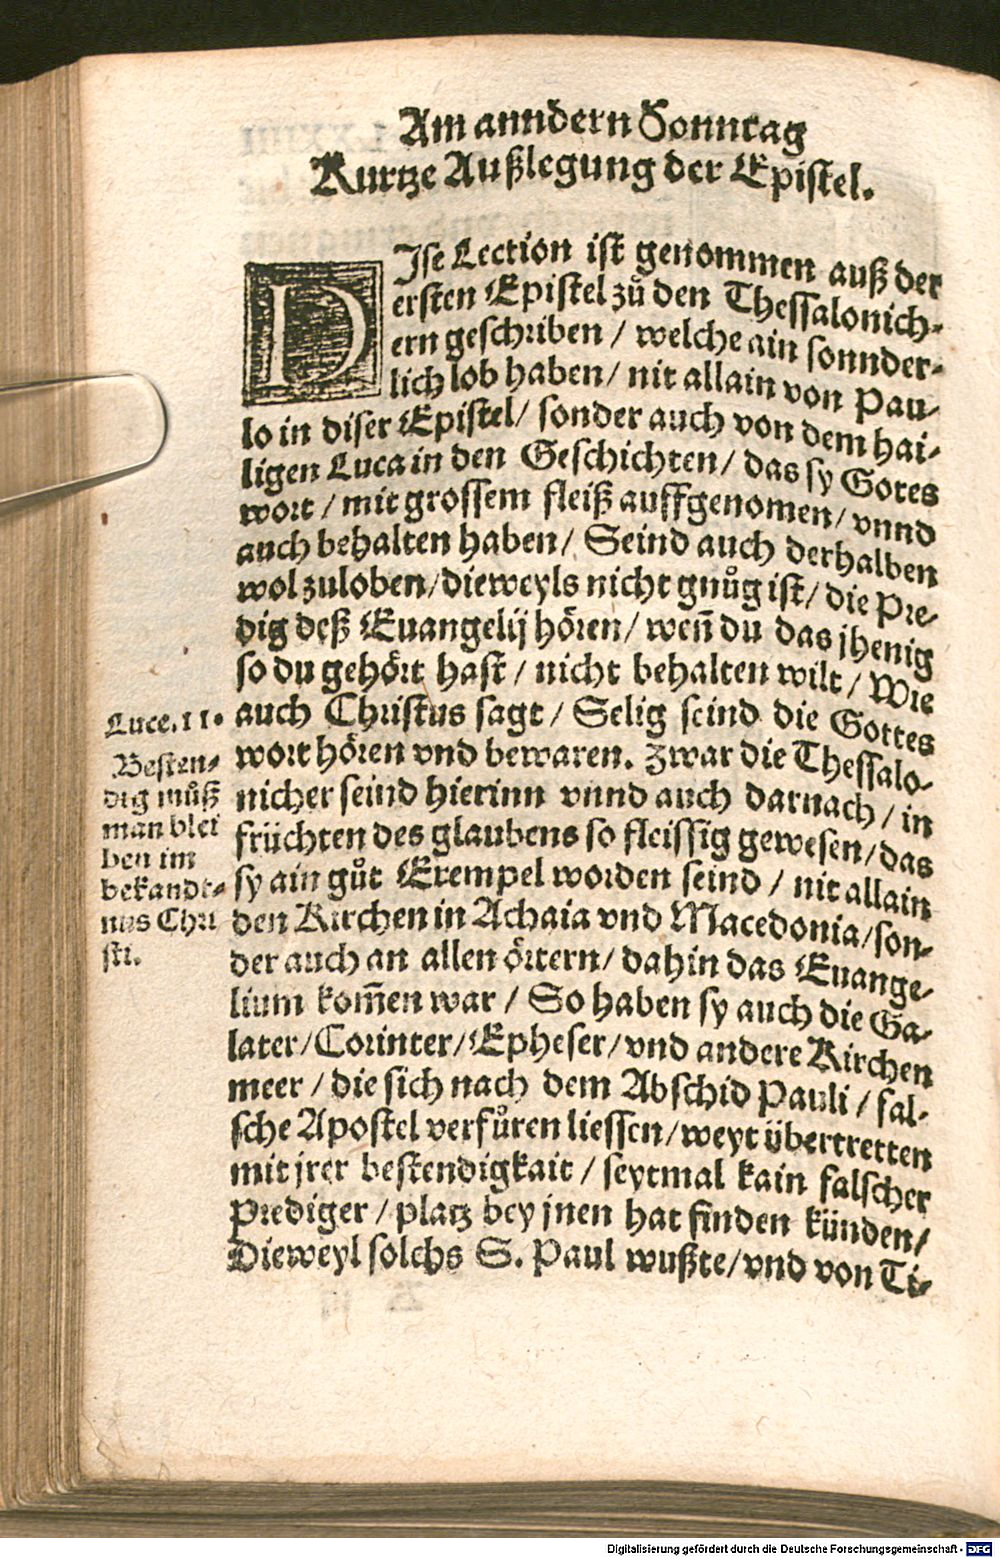 Am anndern Sonntag
Kurtze Außlegung der Epistel.
DIse Lection ist genommen auß der
ersten Epistel zů den Thessalonich-
ern geschriben / welche ain sonnder-
lich lob haben / nit allain von Pau-
lo in diser Epistel / sonder auch von dem hai-
ligen Luca in den Geschichten / das sy Gotes
wort / mit grossem fleiß auffgenomen / vnnd
auch behalten haben / Seind auch derhalben
wol zuloben / dieweyls nicht gnůg ist / die Pre-
dig deß Euangelij hören / weñ du das jhenig
so du gehört hast / nicht behalten wilt / Wie
auch Christus sagt / Selig seind die Gottes
wort hören vnd bewaren. Zwar die Thessalo-
nicher seind hierinn vnnd auch darnach / in
früchten des glaubens so fleissig gewesen / das
sy ain gůt Exempel worden seind / nit allain
den Kirchen in Achaia vnd Macedonia / son-
der auch an allen örtern / dahin das Euange-
lium kom̃en war / So haben sy auch die Ga-
later / Corinter / Epheser / vnd andere Kirchen
meer / die sich nach dem Abschid Pauli / fal-
sche Apostel verfůren liessen / weyt übertretten
mit jrer bestendigkait / seytmal kain falscher
Prediger / platz bey jnen hat finden künden /
Dieweyl solchs S. Paul wußte / vnd von Ti-
Luce. 11.
Besten-
dig můß
man blei
ben im
bekandt-
nus Chri
sti.
Digitalisierung gefördert durch die Deutsche Forschungsgemeinschaft - DFG